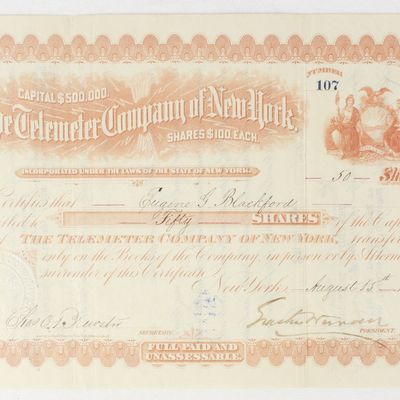 NUMBER
107
CAPITAL $500,000.
The Telemeter Company of New York.
SHARES $100. EACH.
INCORPORATED UNDER THE LAWS OF THE STATE OF NEW YORK.
50
Certifies that Eugene G. Blackford
Fifty SHARES of the Cap
THE TELEMETER COMPANY OF NEW YORK, transfera
only on the Books of the Company, in person or by Attorne
surrender of this Certificate.
New York, August 15th
SECRETARY
PRESIDENT
FULL PAID AND
UNASSESSABLE.